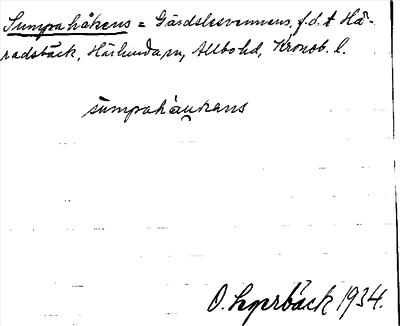 Sumpahåkens = Gårdslesvennens, f.d.t Hä-
radsbäck, Härlunda sn, Allbo hd, Kronob. l.
sumpahåukens
O. hyrbäck 1934.